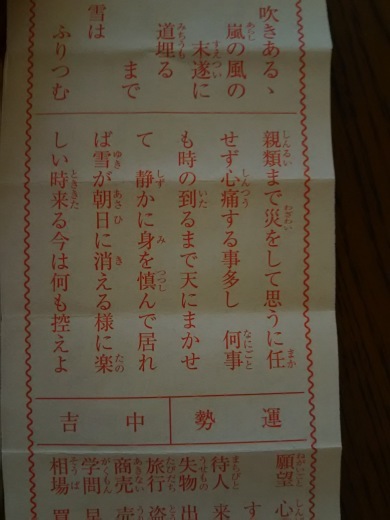 吹きあるゝ
嵐の風の
末遂に
道埋る
まで
雪は
ふりつむ
親類まで災をして思うに任
せず心痛する事多し　何事
も時の到るまで天にまかせ
て　静かに身を慎んで居れ
ば雪が朝日に消える様に楽
しい時来る今は何も控えよ
運勢
中吉
願望　心
す
待人　来
失物　出
旅行　盗
商売　売
学問
相場　買